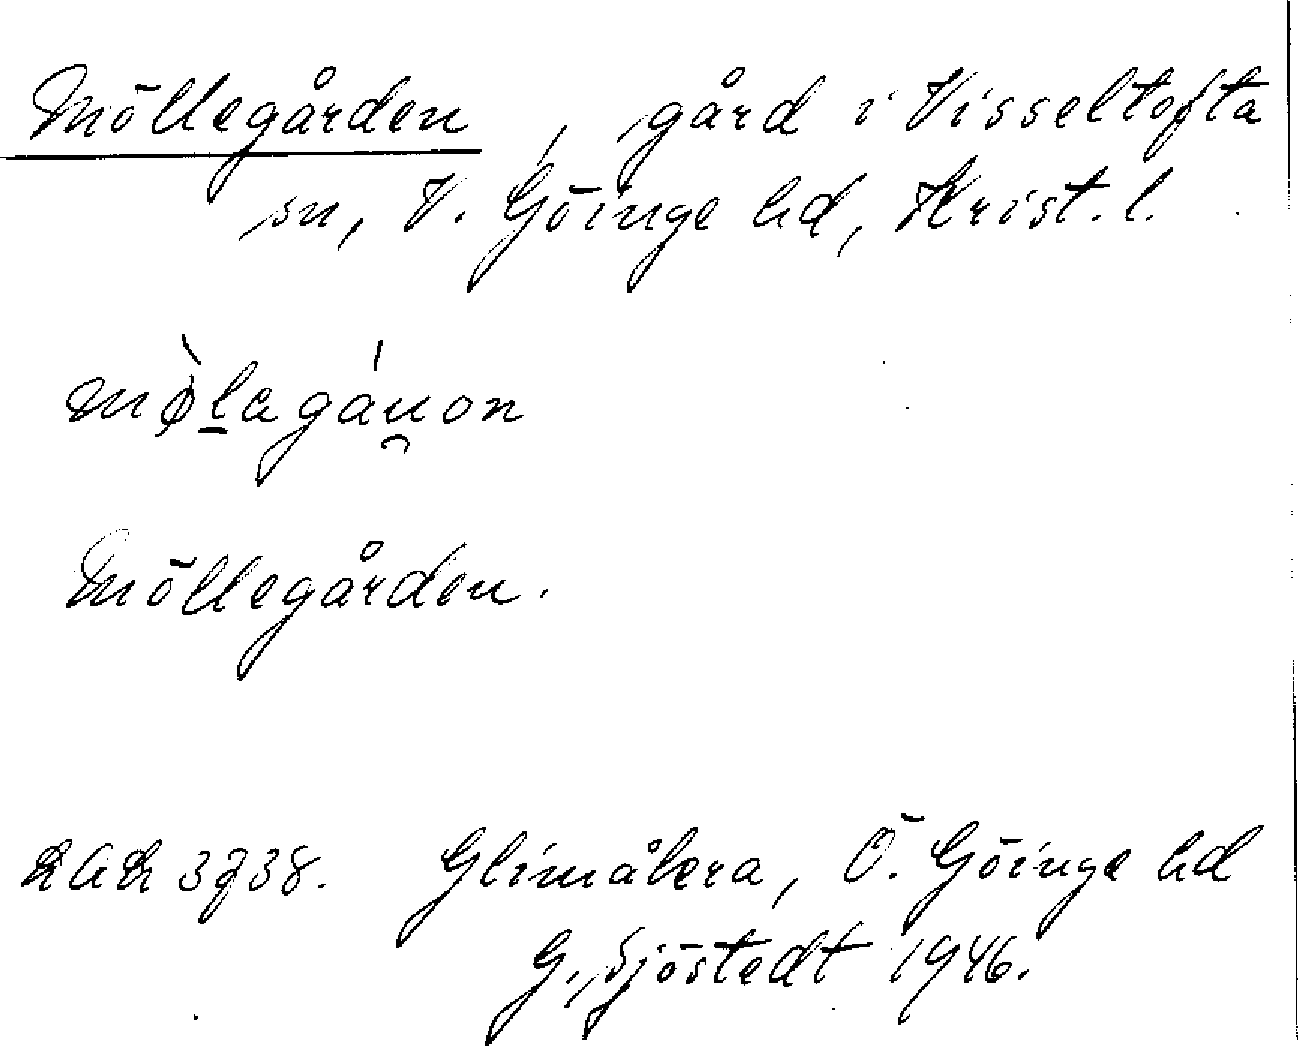 Möllegården, gård i Visseltofta
sn, V. Göinge hd, Krist. l.
mø̀lagáu̯on
Möllegården.
3738. Glimåkra, Ö. Göinge hd
G. Sjöstedt 1946.